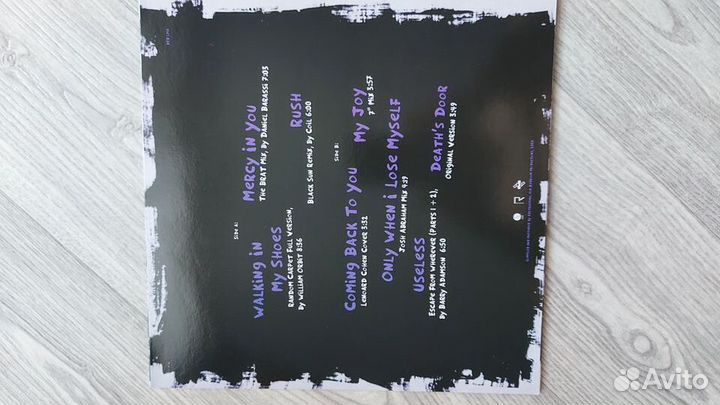 SIDE A:
WALKING IN
MY SHOES
RANDOM CARPET FULL VERSION,
BY WILLIAM ORBIT 8:36
MERCY IN YOU
THE BRAT MIX, BY DANIEL BARASSI 7:03
RUSH
BLACK SUN REMIX, BY COIL 6:00
SIDE B:
COMING BACK TO YOU
LEONARD COHEN COVER 3:52
MY JOY
7" MIX 3:57
ONLY WHEN I LOSE MYSELF
JOSH ABRAHAM MIX 4:29
USELESS
ESCAPE FROM WHEREVER (PARTS 1 + 2),
BY BARRY ADAMSON 6:50
DEATH'S DOOR
ORIGINAL VERSION 3:49
Avito